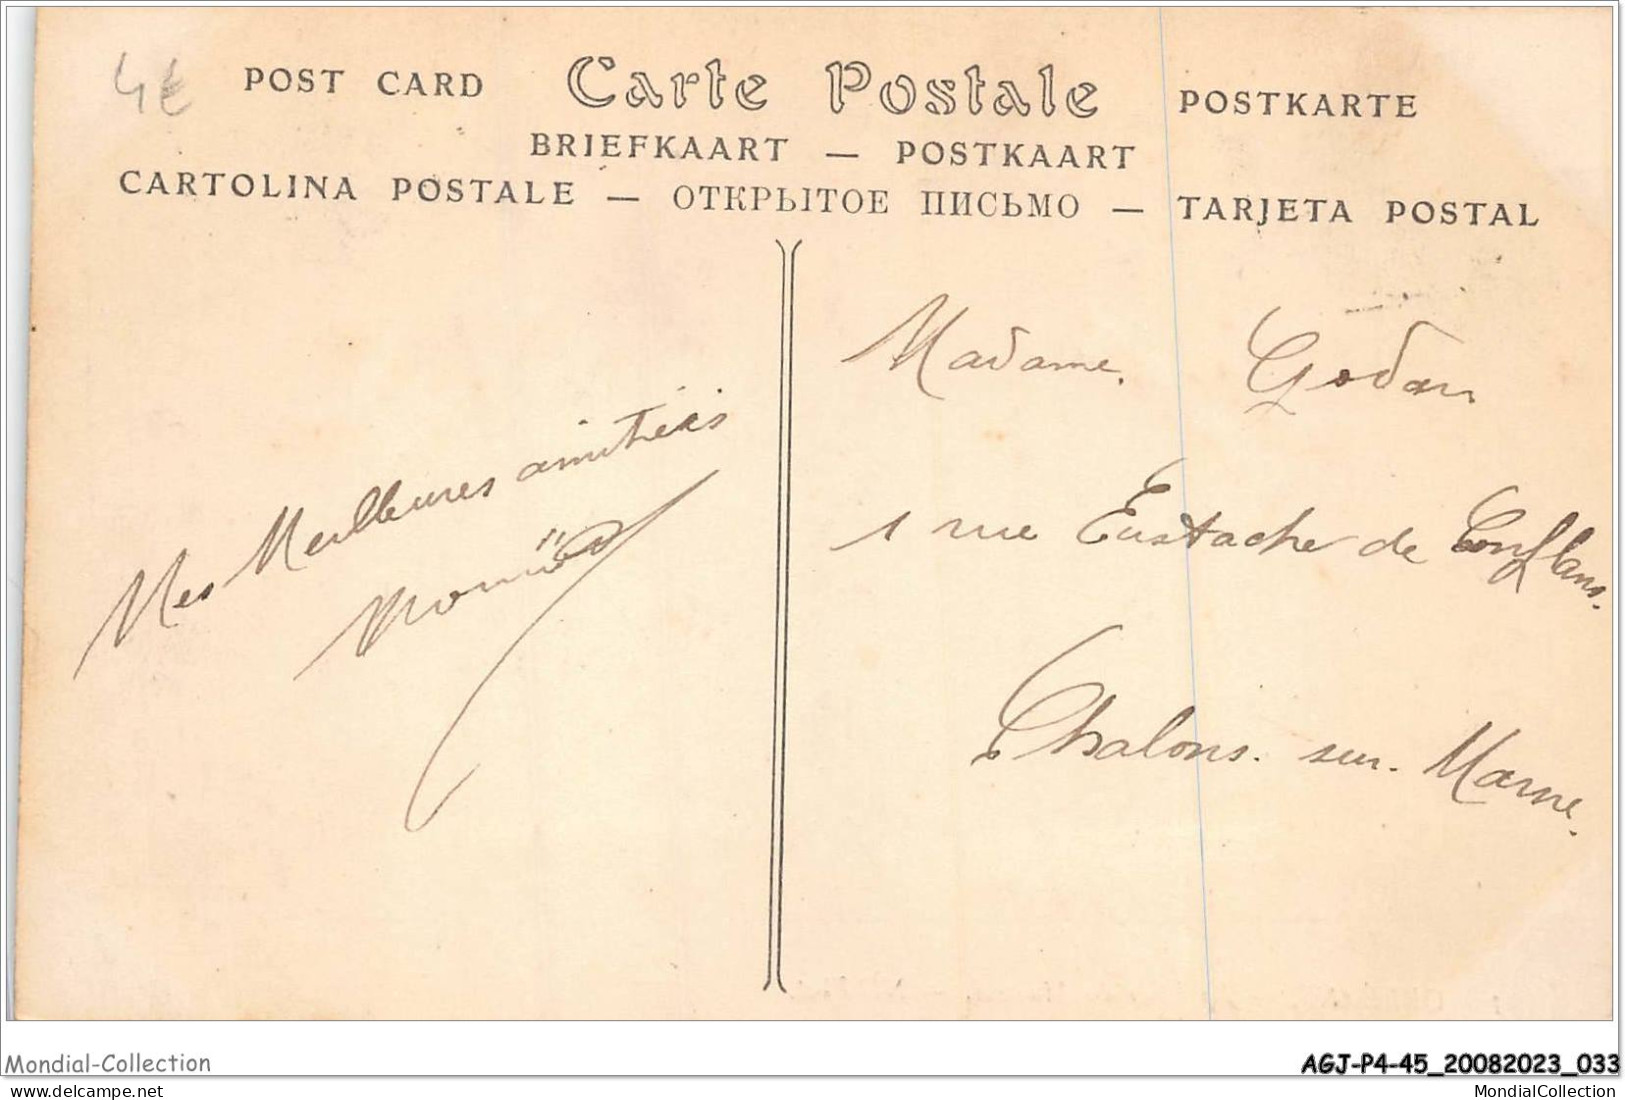 4€
POST CARD Carte Postale POSTKARTE
BRIEFKAART — POSTKAART
CARTOLINA POSTALE — ОТКРЫТОЕ ПИСЬМО — TARJETA POSTAL
Mes Meilleures amitiés
Madame. Godar
1 rue Eustache de Conflans.
Chalons. sur. Marne.
Mondial-Collection
AGJ-P4-45_20082023_033
MondialCollection
www.delcampe.net